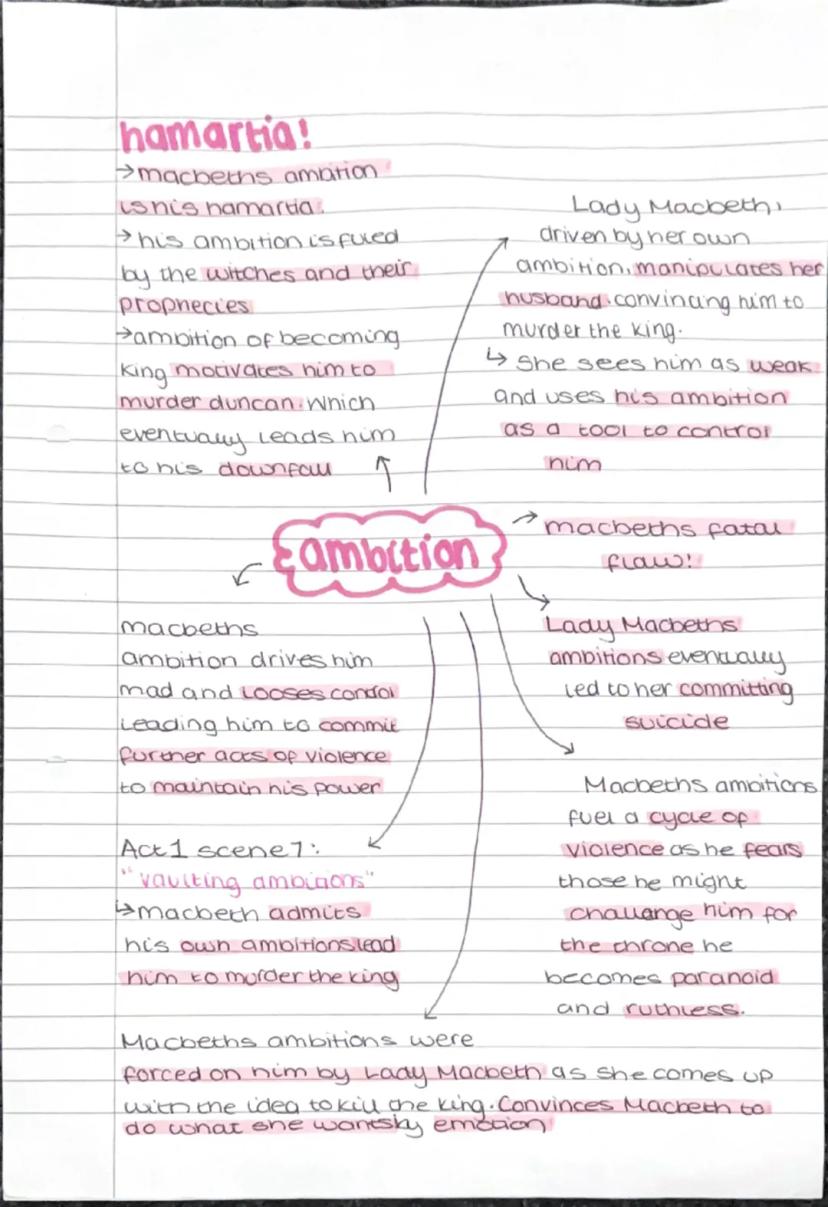 hamartia!
→macbeths ambition
is his hamartia.
→his ambition is fuled
by the witches and their
prophecies
→ambition of becoming
king motivates him to
murder duncan. Which
eventually leads him
to his downfall
Lady Macbeth,
driven by her own
ambition, manipulates her
husband. convincing him to
murder the king.
↳ she sees him as weak
and uses his ambition
as a tool to control
him
ambition
macbeths fatal
flaw!
Lady Macbeths
ambitions eventually
led to her committing
suicide
Macbeths ambitions
fuel a cycle of
violence as he fears
those he might
challange him for
the throne he
becomes paranoid
and ruthless.
macbeths
ambition drives him
mad and looses control
leading him to commit
further acts of violence
to maintain his power
Act 1 scene 7:
"vaulting ambitions"
↳macbeth admits
his own ambitions lead
him to murder the king
Macbeths ambitions were
forced on him by Lady Macbeth as she comes up
with the idea to kill the king. Convinces Macbeth to
do what she wants by emotion